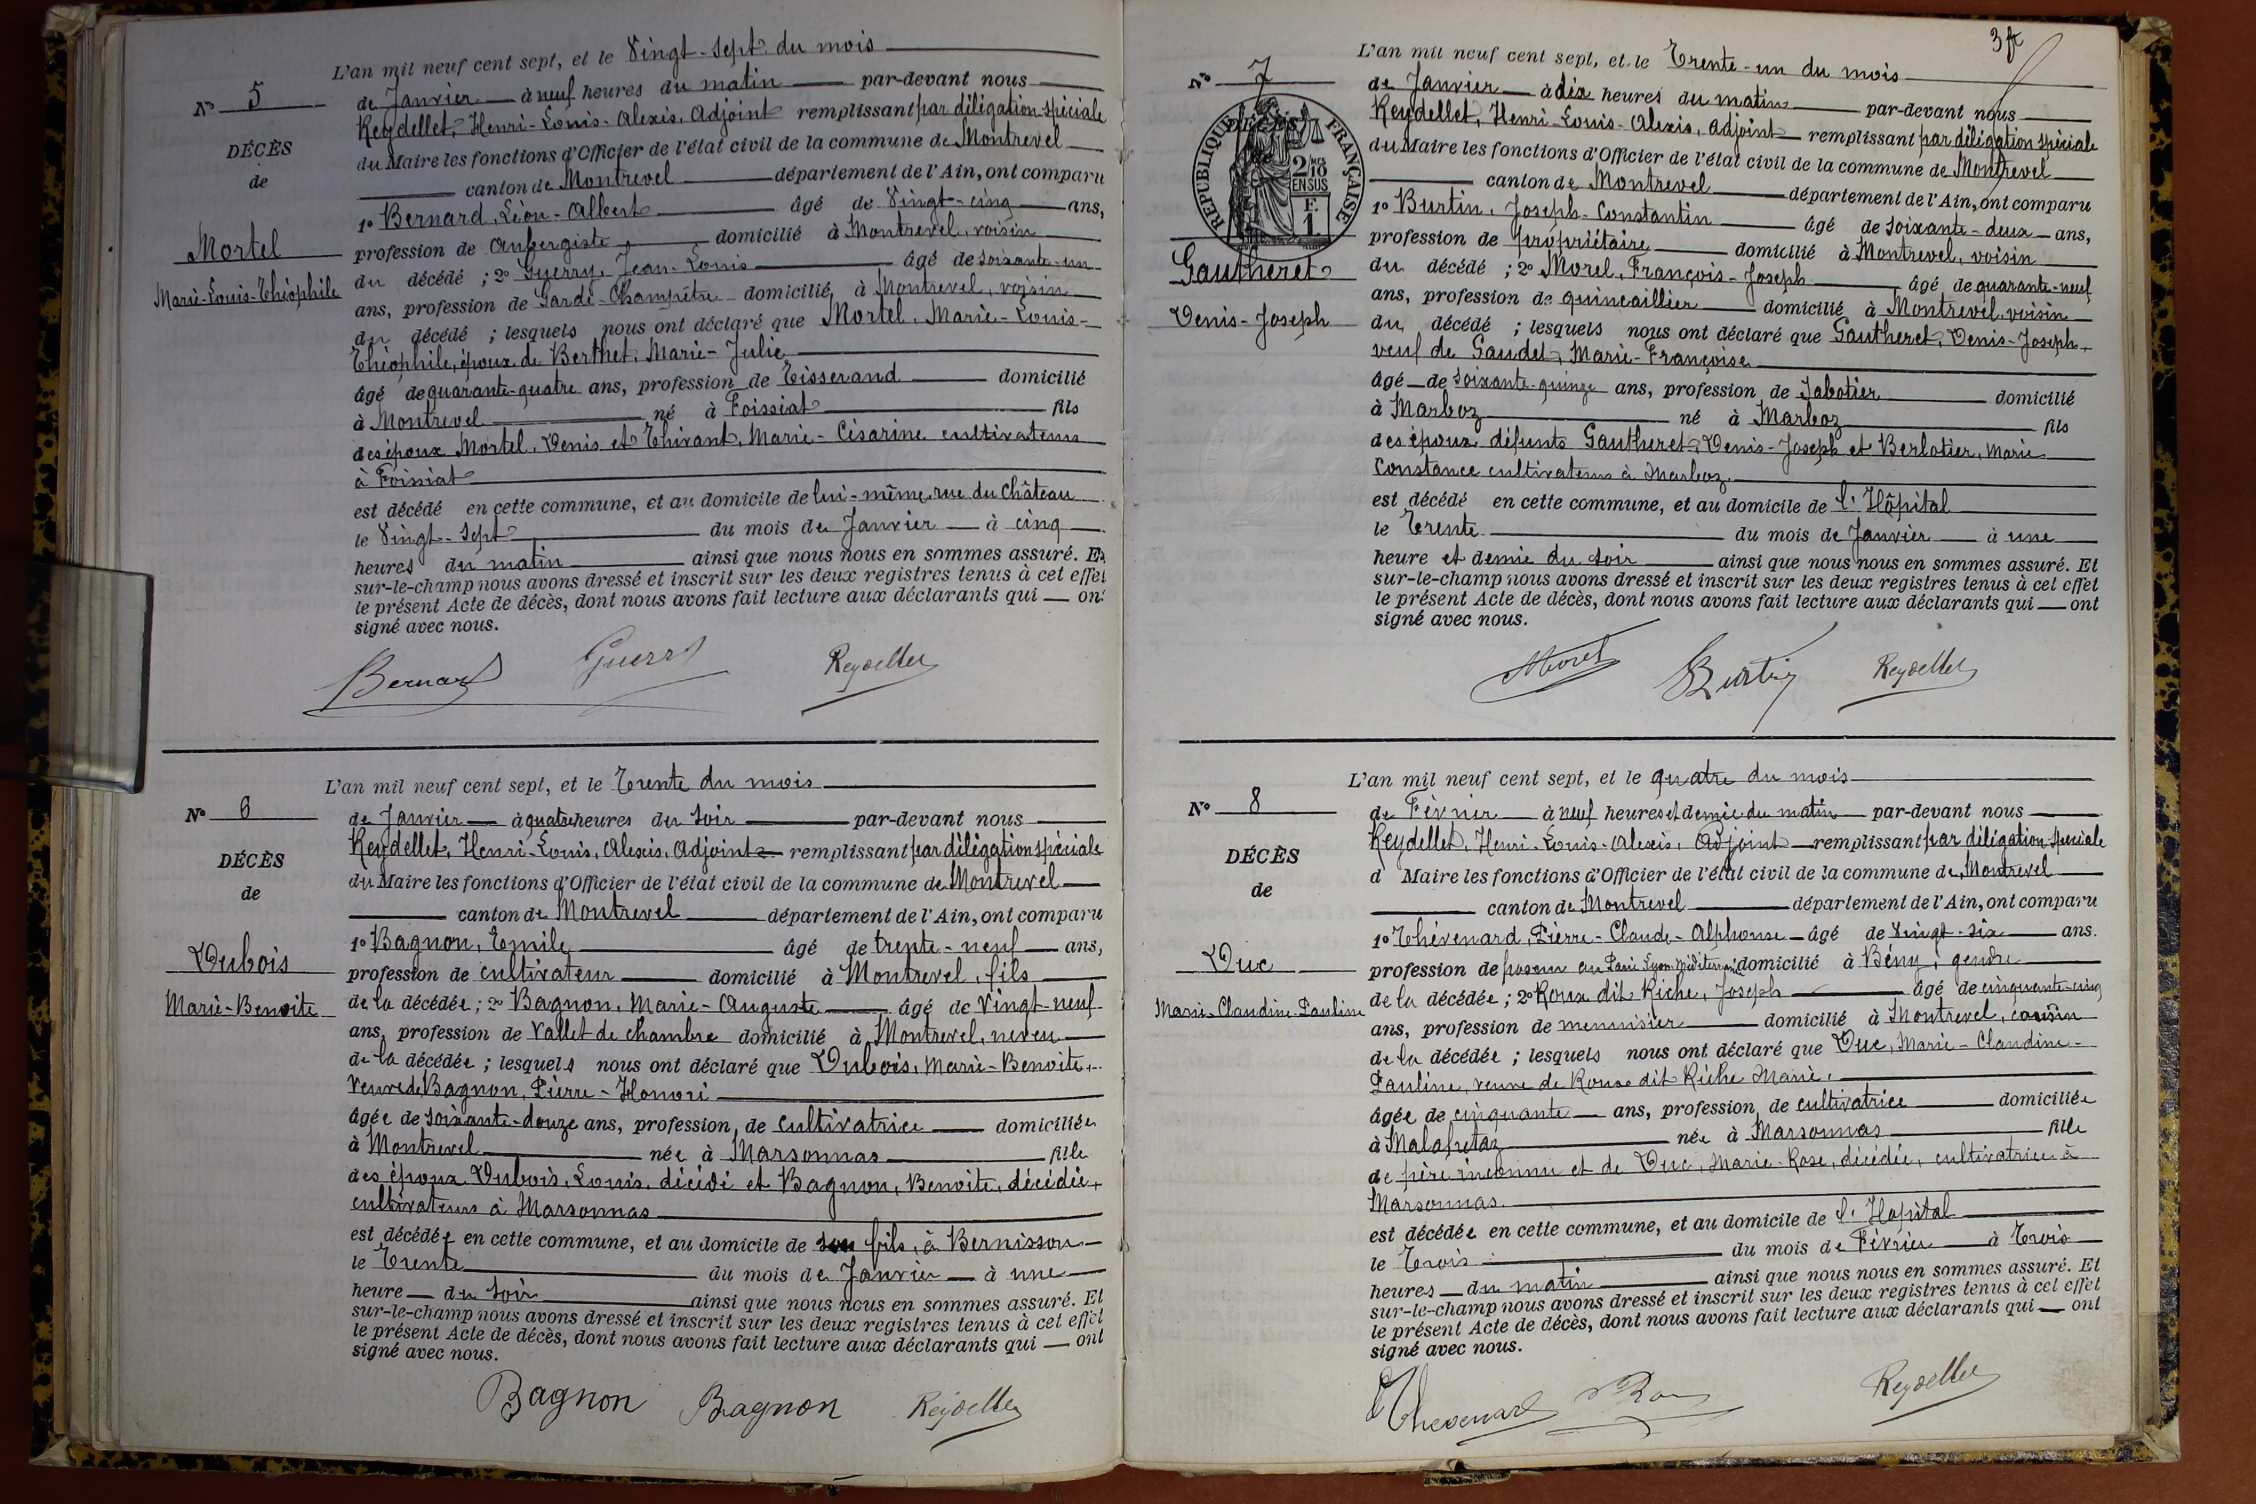 L'an mil neuf cent sept, et le Vingt-sept du mois
N° 5
de Janvier à neuf heures du matin par-devant nous
Reydellet, Henri-Louis-Alexis, Adjoint remplissant par délégation spéciale
DÉCÈS
du Maire les fonctions d'Officier de l'état civil de la commune de Montrevel
de
canton de Montrevel département de l'Ain, ont comparu
1° Bernard, Léon-Albert âgé de Vingt-cinq ans,
Mortel
profession de Aubergiste domicilié à Montrevel, voisin
Marie-Louis-Théophile
du décédé ; 2° Guerry, Jean-Louis âgé de soixante-un
ans, profession de Garde-Champêtre domicilié à Montrevel, voisin
du décédé ; lesquels nous ont déclaré que Mortel, Marie-Louis-
Théophile, époux de Berthet, Marie-Julie
âgé de quarante-quatre ans, profession de Tisserand domicilié
à Montrevel né à Foissiat fils
des époux Mortel, Denis et Thivant, Marie-Césarine cultivateurs
à Foissiat
est décédé en cette commune, et au domicile de lui-même, rue du Château
le Vingt-sept du mois de Janvier à cinq
heures du matin ainsi que nous nous en sommes assuré. Et
sur-le-champ nous avons dressé et inscrit sur les deux registres tenus à cet effet
le présent Acte de décès, dont nous avons fait lecture aux déclarants qui ont
signé avec nous.
Bernard Guerry Reydellet
L'an mil neuf cent sept, et le Trente du mois
N° 6
de Janvier à quatre heures du soir par-devant nous
Reydellet, Henri-Louis, Alexis, Adjoint remplissant par délégation spéciale
DÉCÈS
du Maire les fonctions d'Officier de l'état civil de la commune de Montrevel
de
canton de Montrevel département de l'Ain, ont comparu
1° Bagnon, Emile âgé de trente-neuf ans,
Dubois
profession de cultivateur domicilié à Montrevel, fils
Marie-Benoite
de la décédée ; 2° Bagnon, Marie-Auguste âgé de Vingt-neuf
ans, profession de Vallet de chambre domicilié à Montrevel, neveu
de la décédée ; lesquels nous ont déclaré que Dubois, Marie-Benoite,
Veuve de Bagnon, Pierre-Honoré
âgée de soixante-douze ans, profession de cultivatrice domiciliée
à Montrevel née à Marsonnas fille
des époux Dubois, Louis, décédé et Bagnon, Benoite, décédée,
cultivateurs à Marsonnas
est décédée en cette commune, et au domicile de son fils, à Bernisson
le Trente du mois de Janvier à une
heure du soir ainsi que nous nous en sommes assuré. Et
sur-le-champ nous avons dressé et inscrit sur les deux registres tenus à cet effet
le présent Acte de décès, dont nous avons fait lecture aux déclarants qui ont
signé avec nous.
Bagnon Bagnon Reydellet
3 ft
L'an mil neuf cent sept, et le Trente-un du mois
N° 7
de Janvier à dix heures du matin par-devant nous
Reydellet, Henri-Louis-Alexis, Adjoint remplissant par délégation spéciale
RÉPUBLIQUE FRANÇAISE
2/10 EN SUS
F. 1.
du Maire les fonctions d'Officier de l'état civil de la commune de Montrevel
canton de Montrevel département de l'Ain, ont comparu
1° Burtin, Joseph-Constantin âgé de soixante-deux ans,
profession de propriétaire domicilié à Montrevel, voisin
Gautheret
du décédé ; 2° Morel, François-Joseph âgé de quarante-neuf
ans, profession de quincaillier domicilié à Montrevel, voisin
Denis-Joseph
du décédé ; lesquels nous ont déclaré que Gautheret, Denis-Joseph,
veuf de Gaudet, Marie-Françoise
âgé de soixante-quinze ans, profession de Sabotier domicilié
à Marboz né à Marboz fils
des époux défunts Gautheret, Denis-Joseph et Berlotier, Marie
Constance cultivateurs à Marboz.
est décédé en cette commune, et au domicile de l'Hôpital
le Trente du mois de Janvier à une
heure et demie du soir ainsi que nous nous en sommes assuré. Et
sur-le-champ nous avons dressé et inscrit sur les deux registres tenus à cet effet
le présent Acte de décès, dont nous avons fait lecture aux déclarants qui ont
signé avec nous.
Morel Burtin Reydellet
L'an mil neuf cent sept, et le quatre du mois
N° 8
de Février à neuf heures et demie du matin par-devant nous
Reydellet, Henri-Louis-Alexis, Adjoint remplissant par délégation spéciale
DÉCÈS
d Maire les fonctions d'Officier de l'état civil de la commune de Montrevel
de
canton de Montrevel département de l'Ain, ont comparu
1° Thévenard, Pierre-Claude-Alphonse âgé de Vingt-six ans.
Duc
profession de poseur au Paris Lyon Méditerranée domicilié à Bény, gendre
Marie-Claudine-Pauline
de la décédée ; 2° Roux dit Riche, Joseph âgé de cinquante-cinq
ans, profession de menuisier domicilié à Montrevel, cousin
de la décédée ; lesquels nous ont déclaré que Duc, Marie-Claudine-
Pauline, veuve de Roux dit Riche Marie,
âgée de cinquante ans, profession de cultivatrice domiciliée
à Malafretaz née à Marsonnas fille
de père inconnu et de Duc, Marie-Rose, décédée, cultivatrice à
Marsonnas.
est décédée en cette commune, et au domicile de l'Hopital
le Trois du mois de Février à Trois
heures du matin ainsi que nous nous en sommes assuré. Et
sur-le-champ nous avons dressé et inscrit sur les deux registres tenus à cet effet
le présent Acte de décès, dont nous avons fait lecture aux déclarants qui ont
signé avec nous.
Thevenard Roux Reydellet